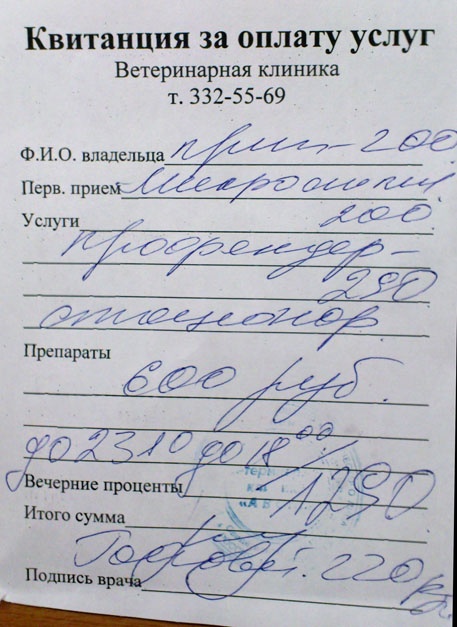 Квитанция за оплату услуг
Ветеринарная клиника
т. 332-55-69
Ф.И.О. владельца прием - 200
Перв. прием Микроскопия
Услуги 200
профендер -
290
стационар
Препараты
600 руб.
до 23 10 до 18 00
Вечерние проценты 1290
Итого сумма
Подпись врача 220